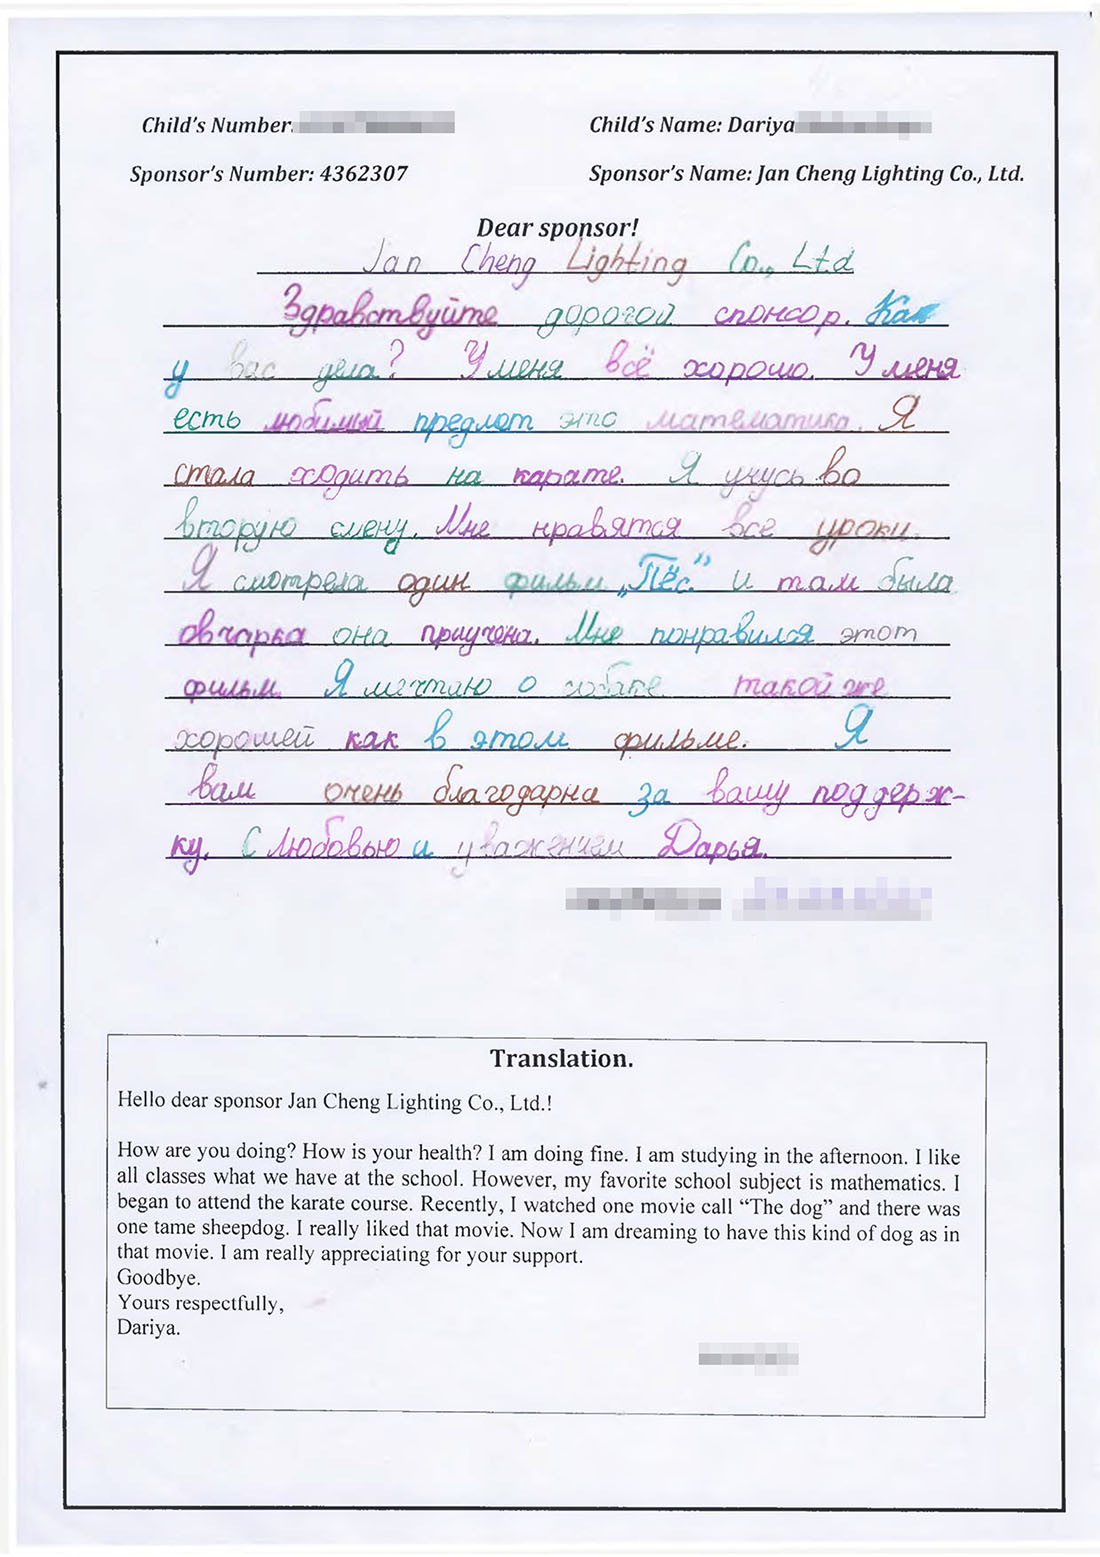 Child's Number:
Child's Name: Dariya
Sponsor's Number: 4362307
Sponsor's Name: Jan Cheng Lighting Co., Ltd.
Dear sponsor!
Jan Cheng Lighting Co., Ltd
Здравствуйте дорогой спонсор. Как
у вас дела? У меня всё хорошо. У меня
есть любимый предмет это математика. Я
стала ходить на карате. Я учусь во
вторую смену. Мне нравятся все уроки.
Я смотрела один фильм „Пёс" и там была
овчарка она приучена. Мне понравился этот
фильм. Я мечтаю о собаке такой же
хорошей как в этом фильме. Я
вам очень благодарна за вашу поддерж-
ку. С Любовью и уважением Дарья.
Translation.
Hello dear sponsor Jan Cheng Lighting Co., Ltd.!
How are you doing? How is your health? I am doing fine. I am studying in the afternoon. I like
all classes what we have at the school. However, my favorite school subject is mathematics. I
began to attend the karate course. Recently, I watched one movie call “The dog” and there was
one tame sheepdog. I really liked that movie. Now I am dreaming to have this kind of dog as in
that movie. I am really appreciating for your support.
Goodbye.
Yours respectfully,
Dariya.